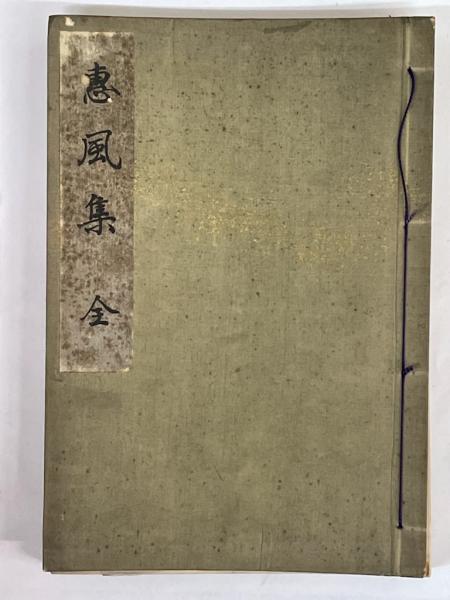 惠風集 全